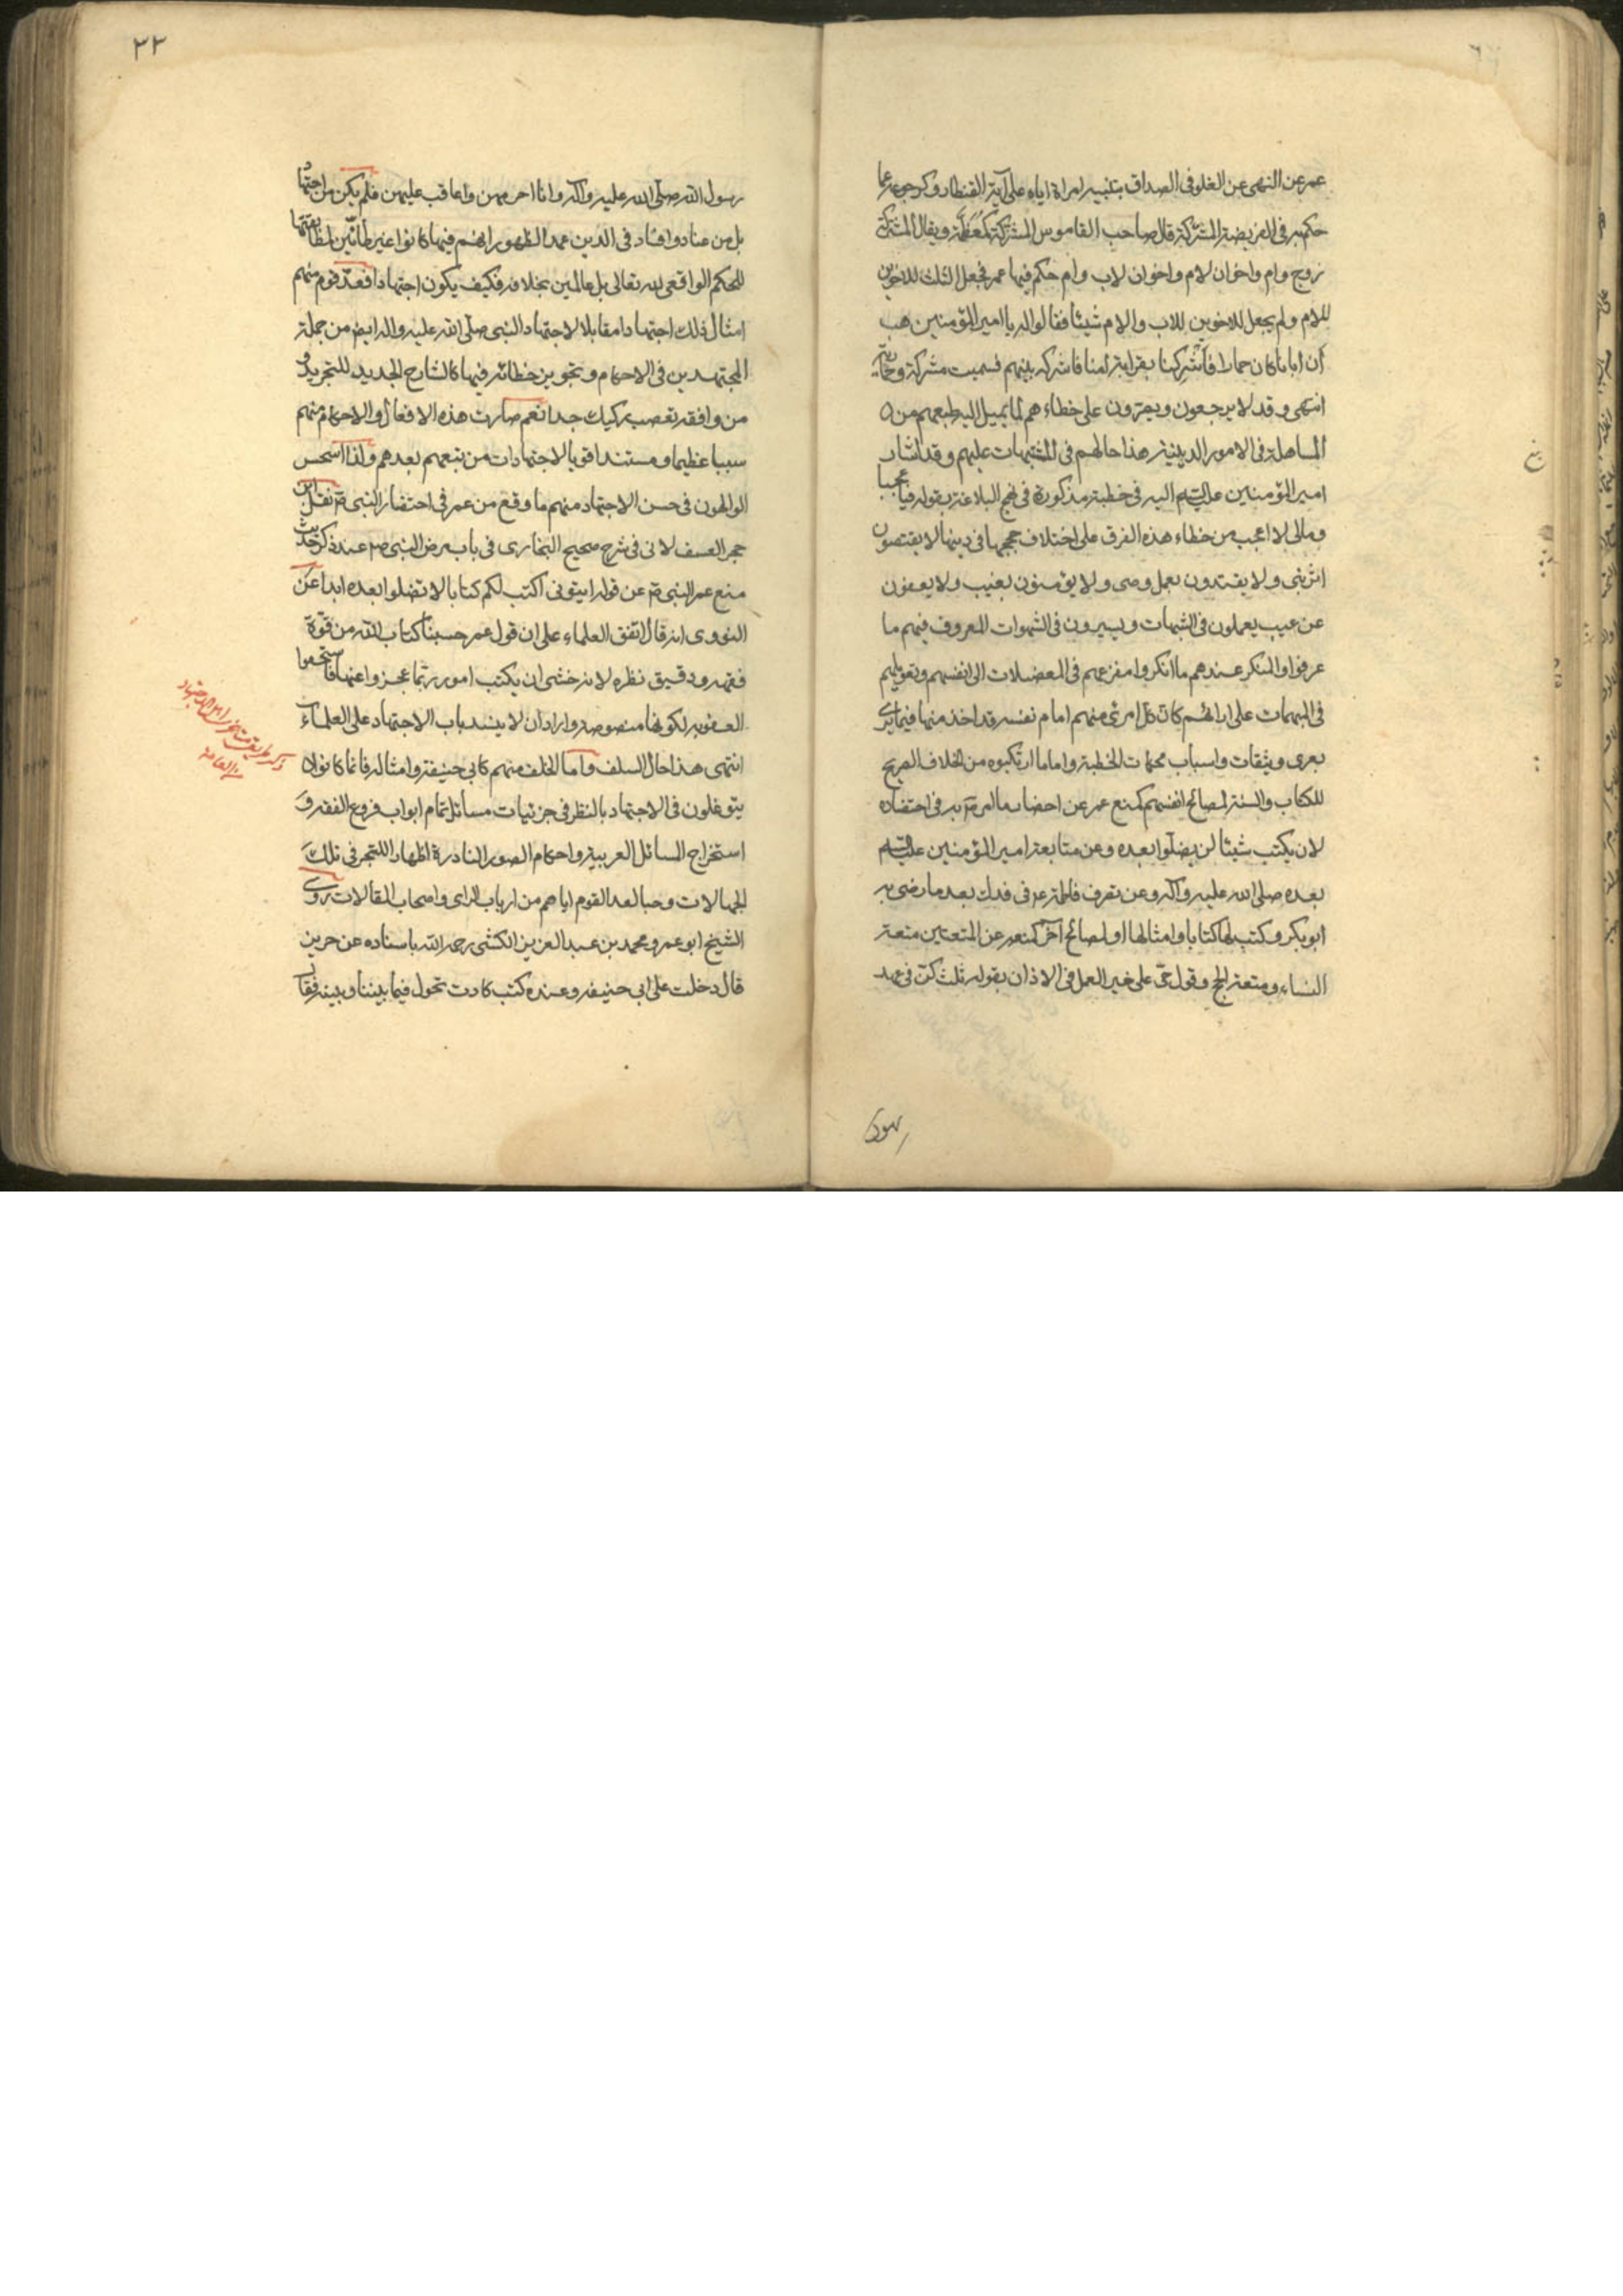 عمر عن النهى عن الغلو فى الصداق بتنبيه امراة اياه على آية القنطار وكرجوعه عما
حكم به فى الفريضة المشركة قال صاحب القاموس المشركة كمعظمة ويقال المشتركة
زوج وام واخوان لام واخوان لاب وام حكم فيها عمر فجعل الثلث للاخوين
للام ولم يجعل للاخوين للاب والام شيئا فقالوا له يا امير المؤمنين هب
أن ابانا كان حمارا فأشركنا بقرابة أمنا فاشرك بينهم فسميت مشركة و
انتهى وقد لا يرجعون ويصرون على خطاءهم لما يميل اليه طبعهم من
المساهلة فى الامور الدينية هذا حالهم فى المشتبهات عليهم وقد اشار
امير المؤمنين عليه السلم اليه فى خطبة مذكورة فى نهج البلاغة بقوله فيا عجبا
ومالى لا اعجب من خطاء هذه الفرق على اختلاف حججها فى دينها لا يقتصون
اثر نبى ولا يقتدون بعمل وصى ولا يؤمنون بغيب ولا يعفون
عن عيب يعملون فى الشبهات ويسيرون فى الشهوات المعروف فيهم ما
عرفوا والمنكر عندهم ما انكروا مفزعهم فى المعضلات الى انفسهم وتعويلهم
فى المبهمات على ارائهم كان كل امرئ منهم امام نفسه قد اخذ منها فيما يرى
بعرى وثيقات واسباب محكمات الخطبة واما ما ارتكبوه من الخلاف الصريح
للكتاب والسنة لمصالح انفسهم كمنع عمر عن احضار ما امر ص به فى احتضاره
لان يكتب شيئا لن يضلوا بعده وعن متابعة امير المؤمنين عليه السلم
بعده صلى الله عليه وآله وعن تصرف فاطمة ع فى فدك بعد ما رضى به
ابو بكر وكتب لها كتابا وامثالها او لمصالح آخر كمنعه عن المتعتين متعة
النساء ومتعة الحج وقول حى على خير العمل فى الاذان بقوله ثلث كن فى عهد
رسول
٣٣
رسول الله صلى الله عليه وآله وانا احرمهن واعاقب عليهن فلم يكن من اجتهاد
بل من عناد وافساد فى الدين عمدا لظهور انهم فيها كانوا غير ظانين لمطابقتها
للحكم الواقعى لله تعالى بل عالمين بخلافه فكيف يكون اجتهادا فعد قوم منهم
امثال ذلك اجتهادا مقابلا لاجتهاد النبى صلى الله عليه واله ايض من جملة
المجتهدين فى الاحكام وتجويز خطائه فيها كالشارح الجديد للتجريد و
من وافقه تعصب ركيك جدا نعم صارت هذه الافعال والاحكام منهم
سببا عظيما ومستندا قويا لاجتهادات من تبعهم بعدهم ولذا استحسن
الوالهون فى حسن الاجتهاد منهم ما وقع من عمر فى احتضار النبى ص نقل ابن
حجر العسقلانى فى شرح صحيح البخارى فى باب مرض النبى ص عند ذكر حديث
منع عمر النبى ص عن قوله ايتونى اكتب لكم كتابا لا تضلوا بعده ابدا عن
النووى انه قال اتفق العلماء على ان قول عمر حسبنا كتاب الله من قوة
فقهه ودقيق نظره لانه خشى ان يكتب امور ربما عجزوا عنها فاستحقوا
العقوبة لكونها منصوصة واراد ان لا ينسد باب الاجتهاد على العلماء
انتهى هذا حال السلف واما الخلف منهم كابى حنيفة وامثاله فانما كانوا
يتوغلون فى الاجتهاد بالنظر فى جزئيات مسائل تمام ابواب فروع الفقه و
استخراج المسائل الغريبة واحكام الصور النادرة اظهارا للتبحر فى تلك
الجهالات وحبا لعد القوم اياهم من ارباب الراى واصحاب المقالات روى
الشيخ ابو عمرو محمد بن عبد العزيز الكشى رحمه الله باسناده عن حريز
قال دخلت على ابى حنيفة وعنده كتب كادت تحول فيما بيننا وبينه فقال